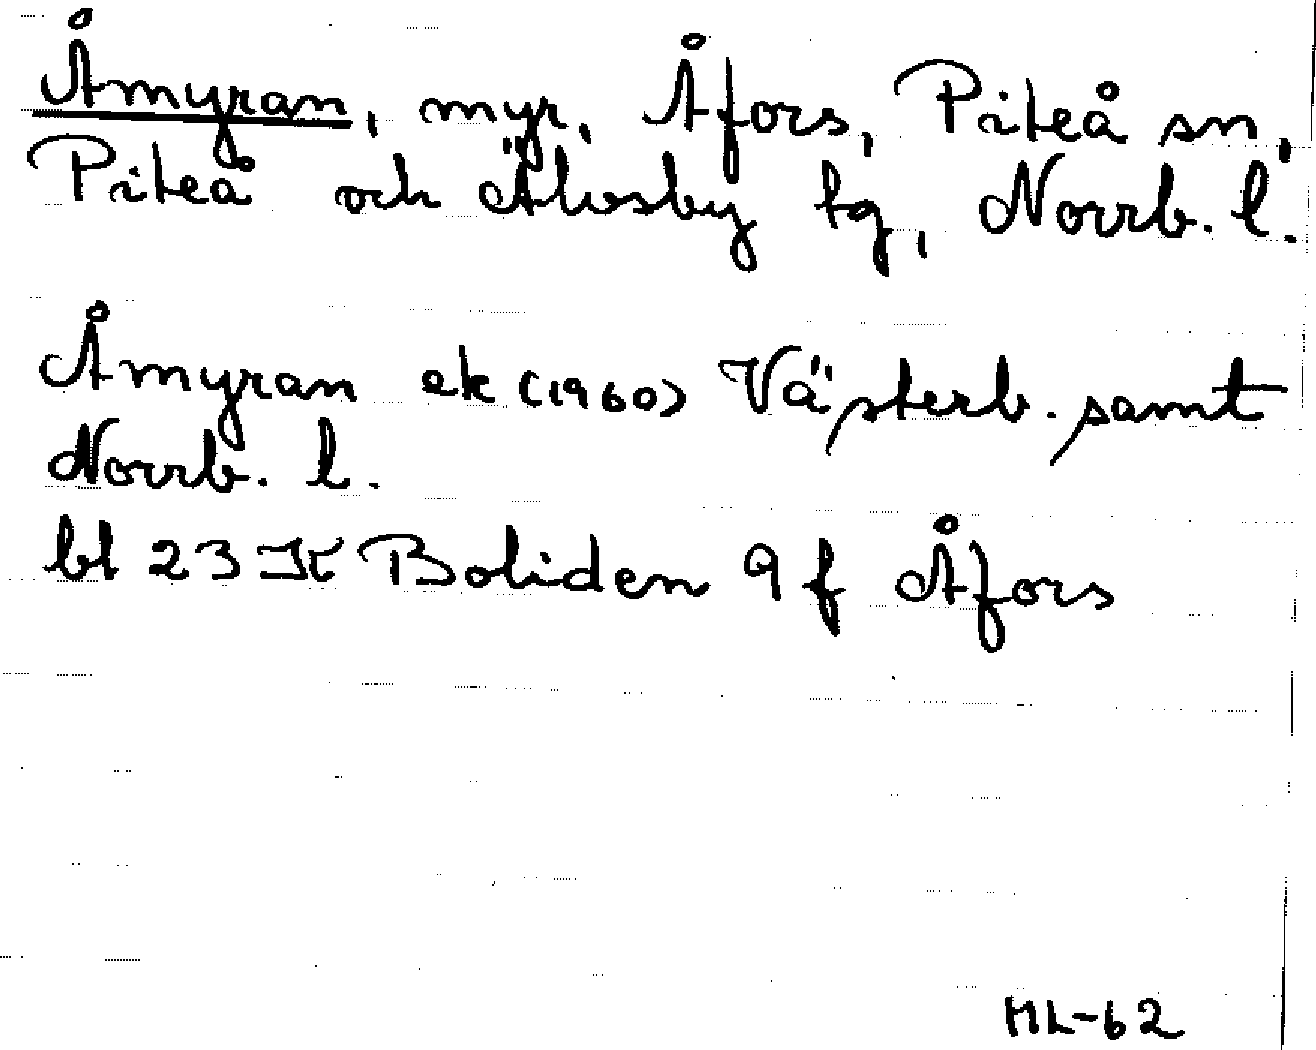 Åmyran, myr, Åfors, Piteå sn,
Piteå och Älvsby tg, Norrb. l.
Åmyran ek (1960) Västerb. samt
Norrb. l.
bl 23 K Boliden 9 f Åfors
ML-62